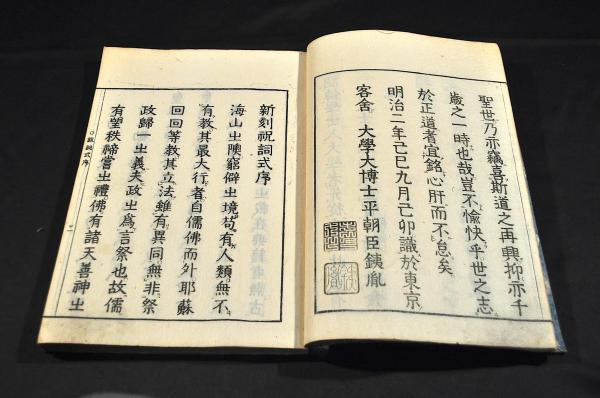 聖世乃亦竊喜斯道之再興抑亦千
歳之一時也哉豈不愉快乎世之志
於正道者宜銘心肝而不怠矣
明治二年己巳九月己卯識於東京
客舍 大學大博士平朝臣銕胤
新刻祝詞式序
海山㞢陬窮僻㞢境苟有人類無不
有教其最大行者自儒佛而外耶蘇
回回等教其立法雖有異同無非祭
政歸一㞢義夫政㞢爲言祭也故儒
有望秩禘嘗㞢禮佛有諸天善神㞢
祝詞式序